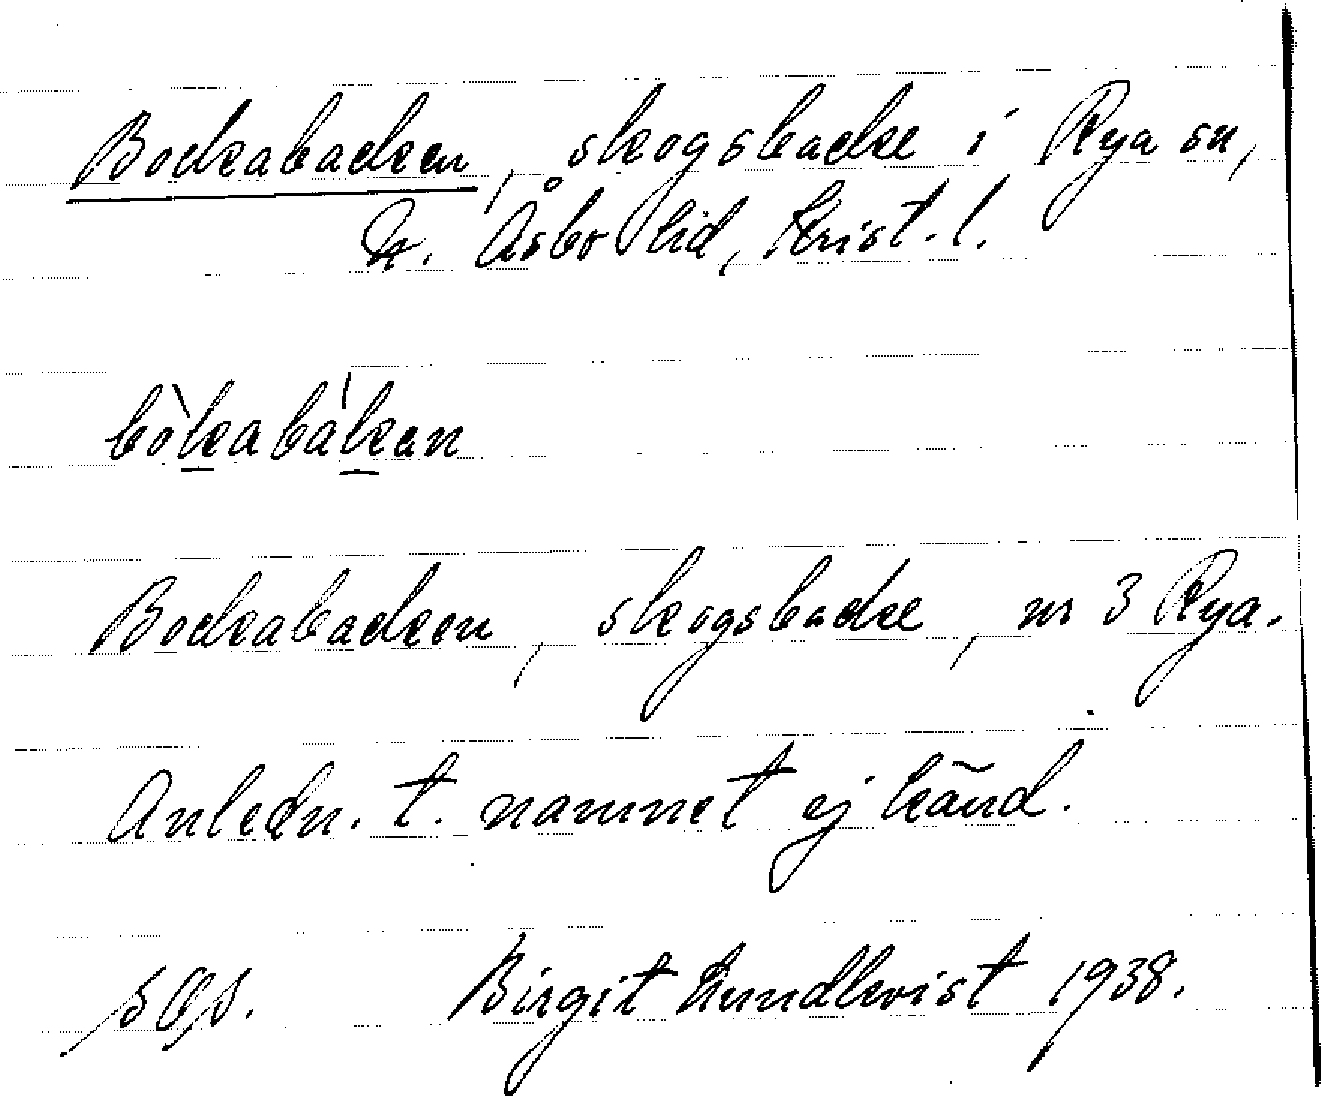 Bockabacken, skogsbacke i Rya sn,
N. Åsbo hd, Krist. l.
bòkabàkan
Bockabacken, skogsbacke, nr 3 Rya.
Anledn. t. namnet ej känd.
Birgit Lundkvist 1938.